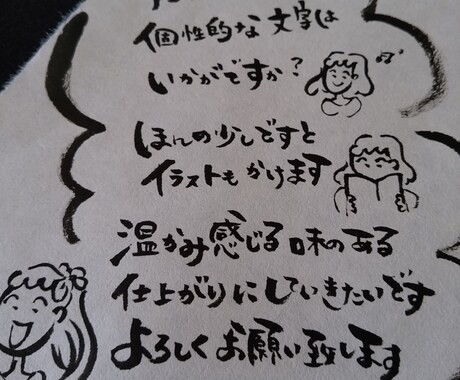 個性的な文字は
いかがですか？
ほんの少しですと
イラストもかけます
温かみ感じる味のある
仕上がりにしていきたいです
よろしくお願い致します